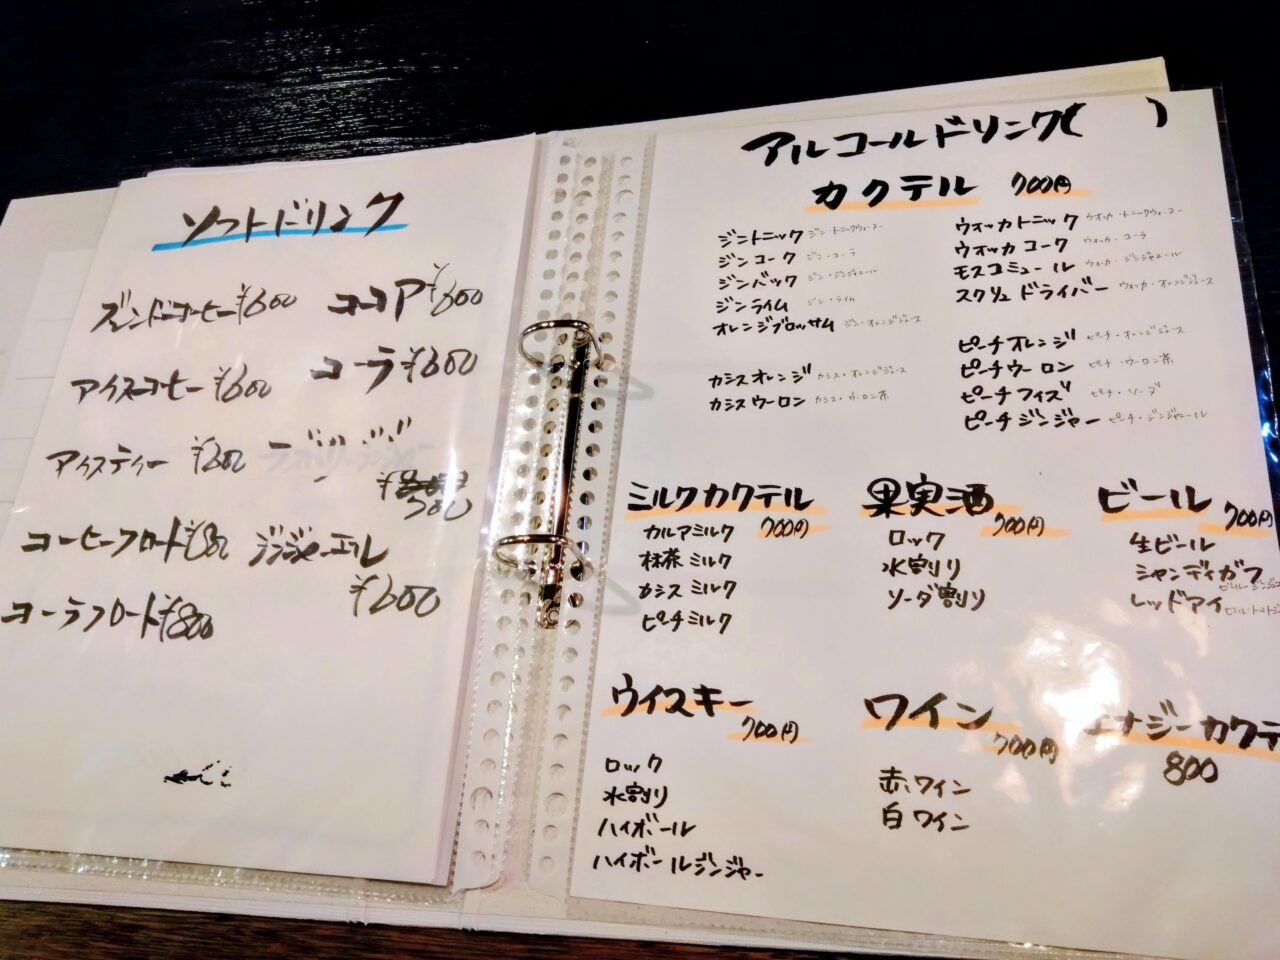 ソフトドリンク
ブレンドコーヒー ¥600
ココア ¥600
アイスコーヒー ¥600
コーラ ¥600
アイスティー ¥600
コーヒーフロート ¥800
ジンジャーエール
¥600
コーラフロート ¥800
アルコールドリンク( )
カクテル 700円
ジントニック ジン・トニックウォーター
ジンコーク ジン・コーラ
ジンバック ジン・ジンジャエール
ジンライム ジン・ライム
オレンジブロッサム ジン・オレンジジュース
カシスオレンジ カシス・オレンジジュース
カシスウーロン カシス・ウーロン茶
ウォッカトニック ウォッカ・トニックウォーター
ウォッカコーク ウォッカ・コーラ
モスコミュール ウォッカ・ジンジャエール
スクリュードライバー ウォッカ・オレンジジュース
ピーチオレンジ ピーチ・オレンジジュース
ピーチウーロン ピーチ・ウーロン茶
ピーチフィズ ピーチ・ソーダ
ピーチジンジャー ピーチ・ジンジャエール
ミルクカクテル
700円
カルアミルク
抹茶ミルク
カシスミルク
ピーチミルク
果実酒
700円
ロック
水割り
ソーダ割り
ビール
700円
生ビール
シャンディガフ
レッドアイ
ウイスキー
700円
ロック
水割り
ハイボール
ハイボールジンジャー
ワイン
700円
赤ワイン
白ワイン
エナジーカクテ
800